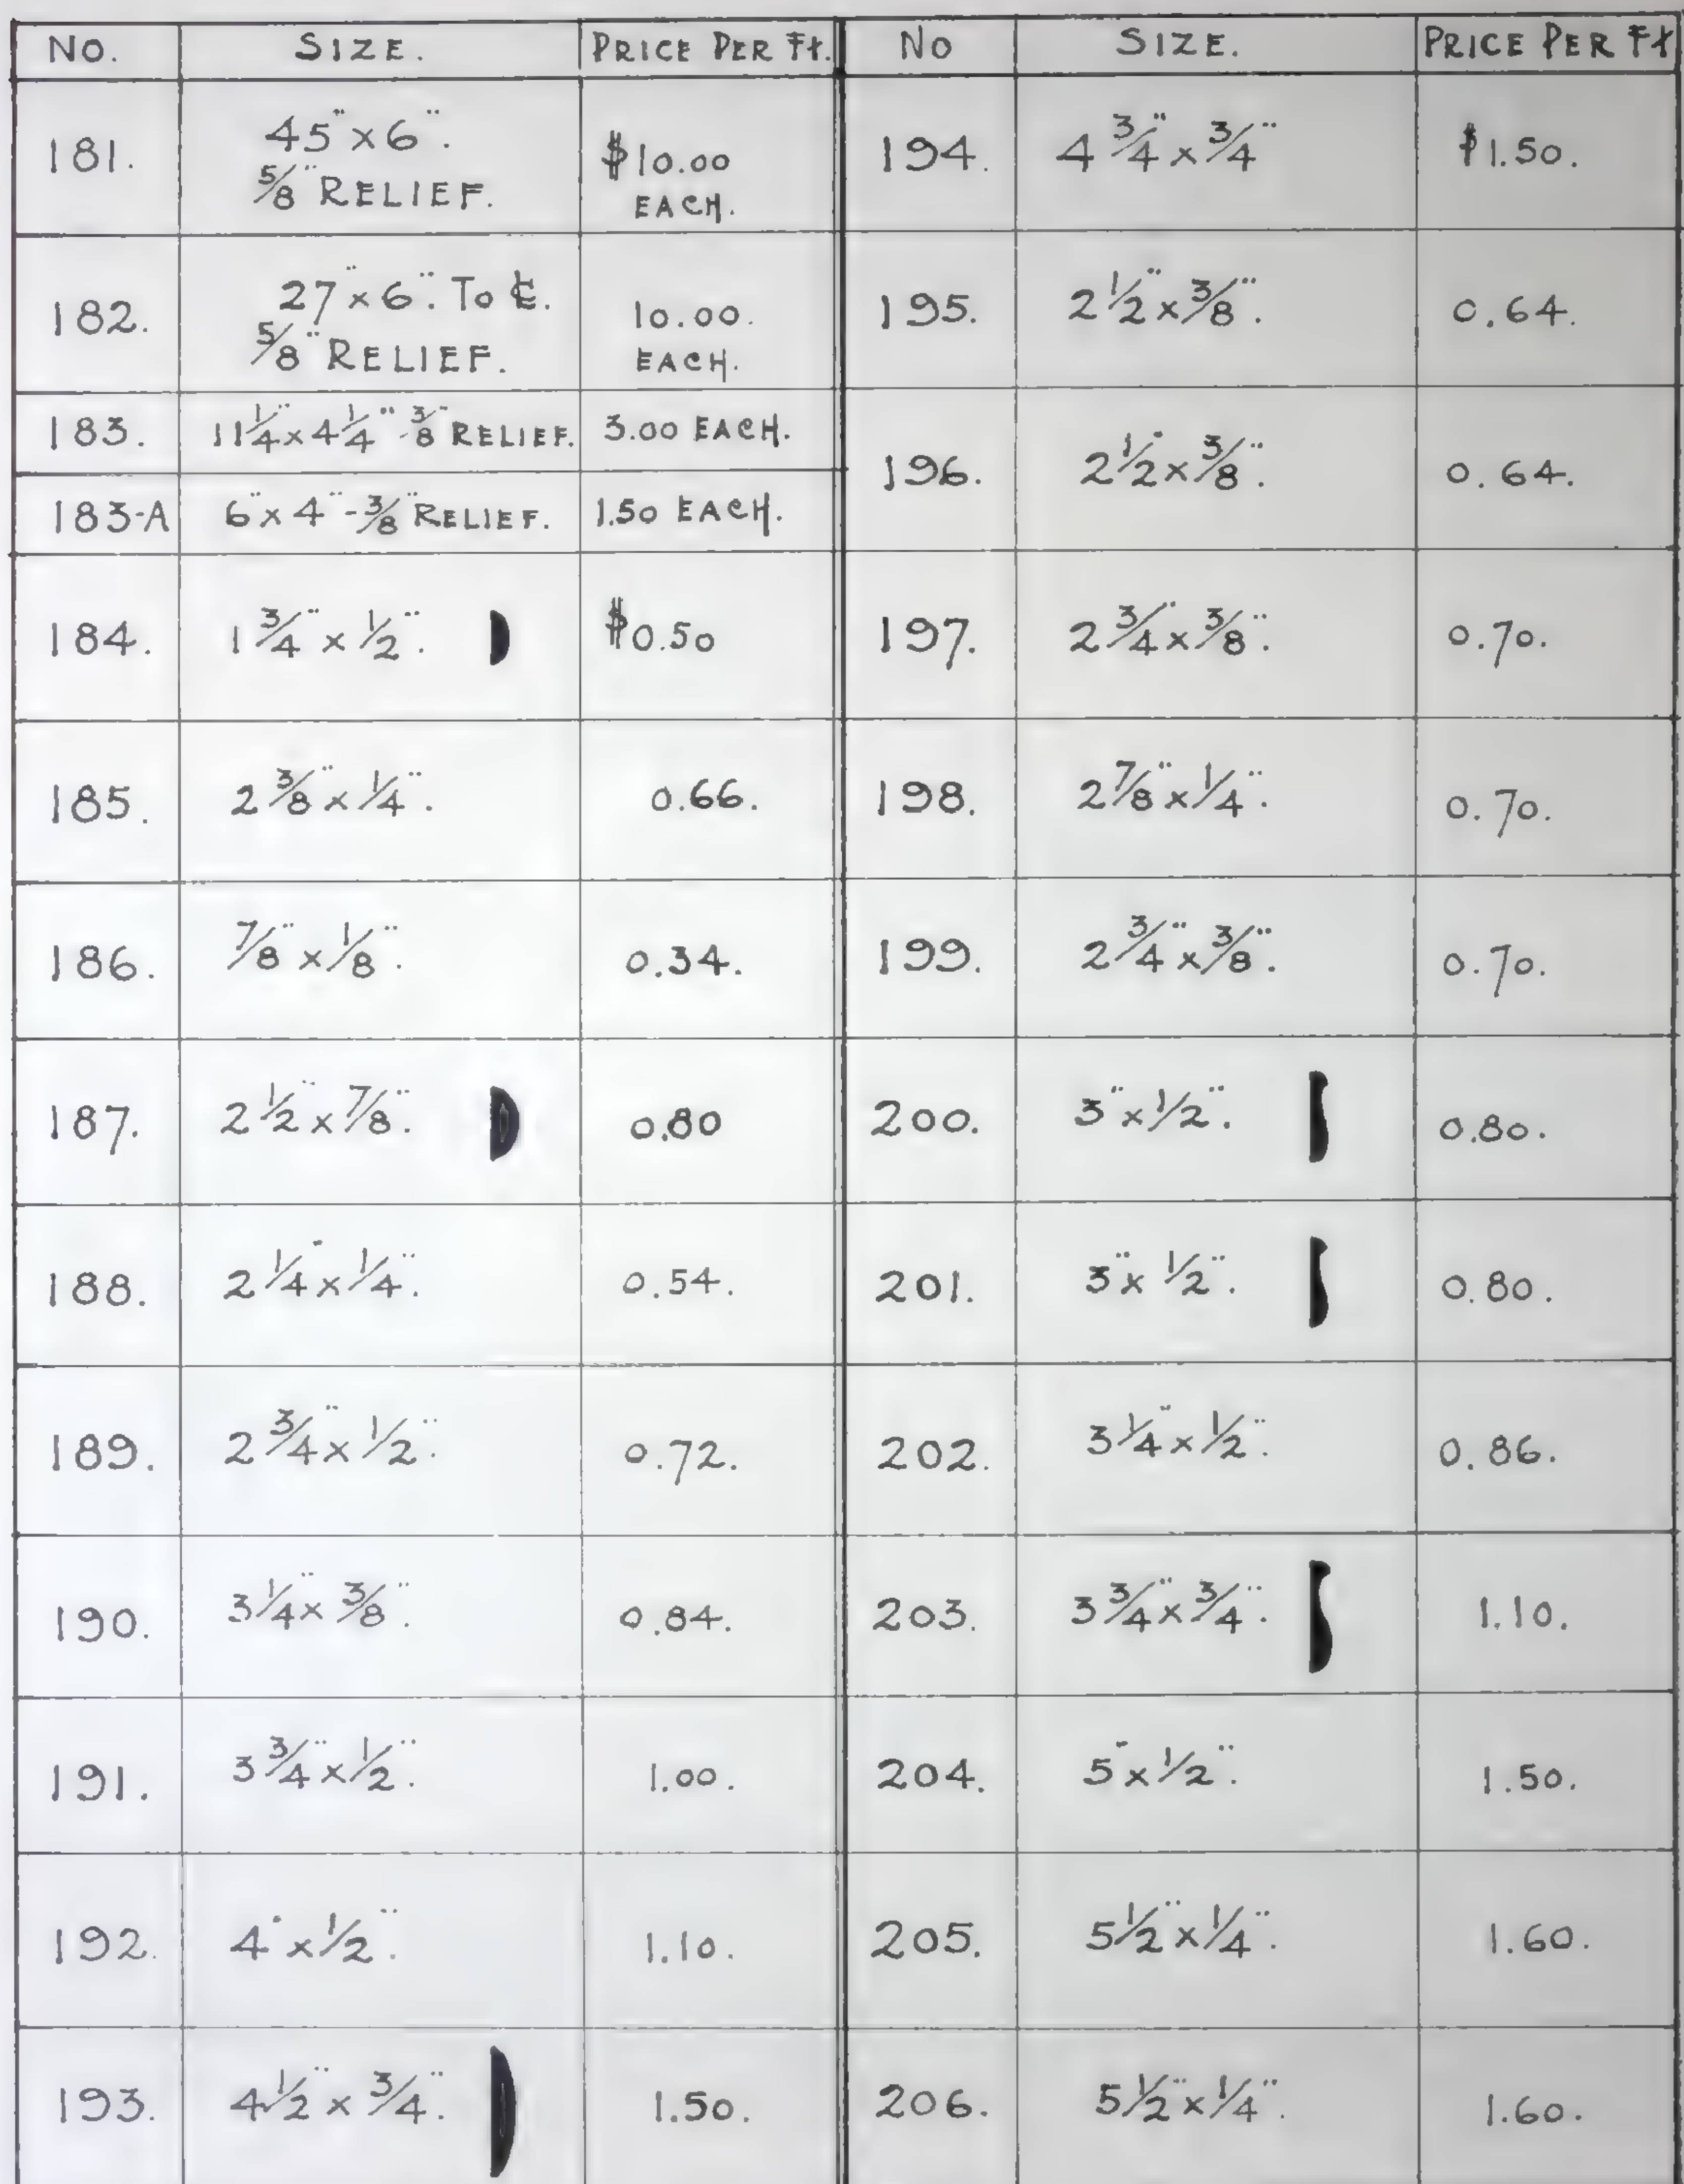 NO. SIZE. PRICE PER Ft. NO SIZE. PRICE PER Ft
181. 45" x 6". $10.00
5/8" RELIEF. EACH.
182. 27" x 6". To ℄. 10.00.
5/8" RELIEF. EACH.
183. 11 1/4" x 4 1/4" - 3/8" RELIEF. 3.00 EACH.
183-A 6" x 4" - 3/8" RELIEF. 1.50 EACH.
184. 1 3/4" x 1/2". $0.50
185. 2 3/8" x 1/4". 0.66.
186. 7/8" x 1/8". 0.34.
187. 2 1/2" x 7/8". 0.80
188. 2 1/4" x 1/4". 0.54.
189. 2 3/4" x 1/2". 0.72.
190. 3 1/4" x 3/8". 0.84.
191. 3 3/4" x 1/2". 1.00.
192. 4" x 1/2". 1.10.
193. 4 1/2" x 3/4". 1.50.
194. 4 3/4" x 3/4" $1.50.
195. 2 1/2" x 3/8". 0.64.
196. 2 1/2" x 3/8". 0.64.
197. 2 3/4" x 3/8". 0.70.
198. 2 7/8" x 1/4". 0.70.
199. 2 3/4" x 3/8". 0.70.
200. 3" x 1/2". 0.80.
201. 3" x 1/2". 0.80.
202. 3 1/4" x 1/2". 0.86.
203. 3 3/4" x 3/4". 1.10.
204. 5" x 1/2". 1.50.
205. 5 1/2" x 1/4". 1.60.
206. 5 1/2" x 1/4". 1.60.